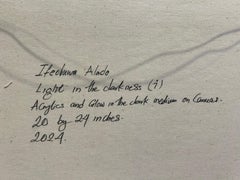 Light in the darkness (1)
Acrylics and Glow in the dark medium on Canvas.
20 by 24 inches.
2024.